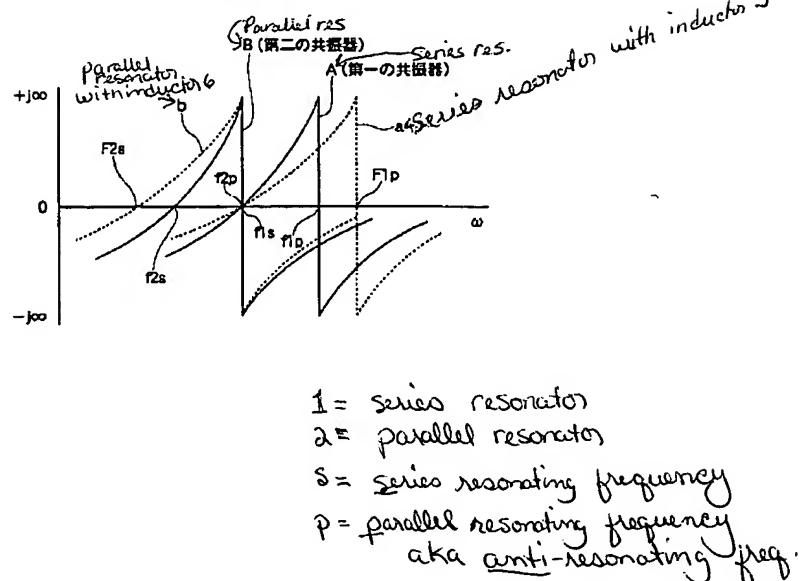 Parallel res
B (第二の共振器)
series res.
A (第一の共振器)
series resonator with inductor
Parallel
resonator
with inductor 6
b
a
+j∞
F2s
f2p
F1p
0
ω
f1s
f1p
f2s
-j∞
1 = series resonator
2 = parallel resonator
S = series resonating frequency
P = parallel resonating frequency
aka anti-resonating freq.